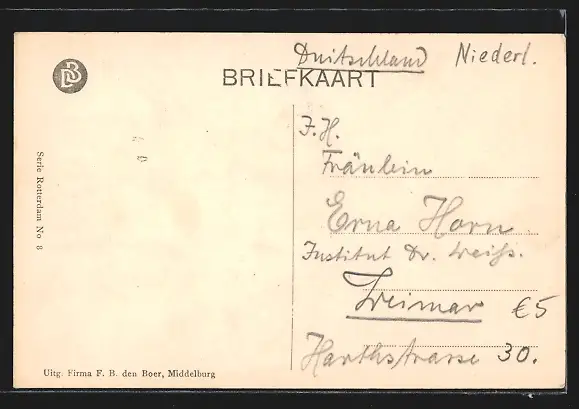 Duitschland Niederl.
BRIEFKAART
DB
J. H.
Fräulein
Erna Horn
Institut Dr. Weiss.
Weimar €5
Harthstrasse 30.
Serie Rotterdam No 8
Uitg. Firma F. B. den Boer, Middelburg